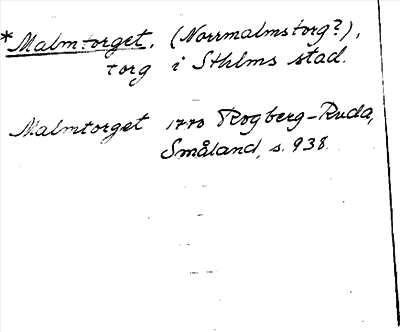 *Malmtorget, (Norrmalmstorg?),
torg i Sthlms stad.
Malmtorget 1770 Rogberg-Ruda,
Småland, s. 938.